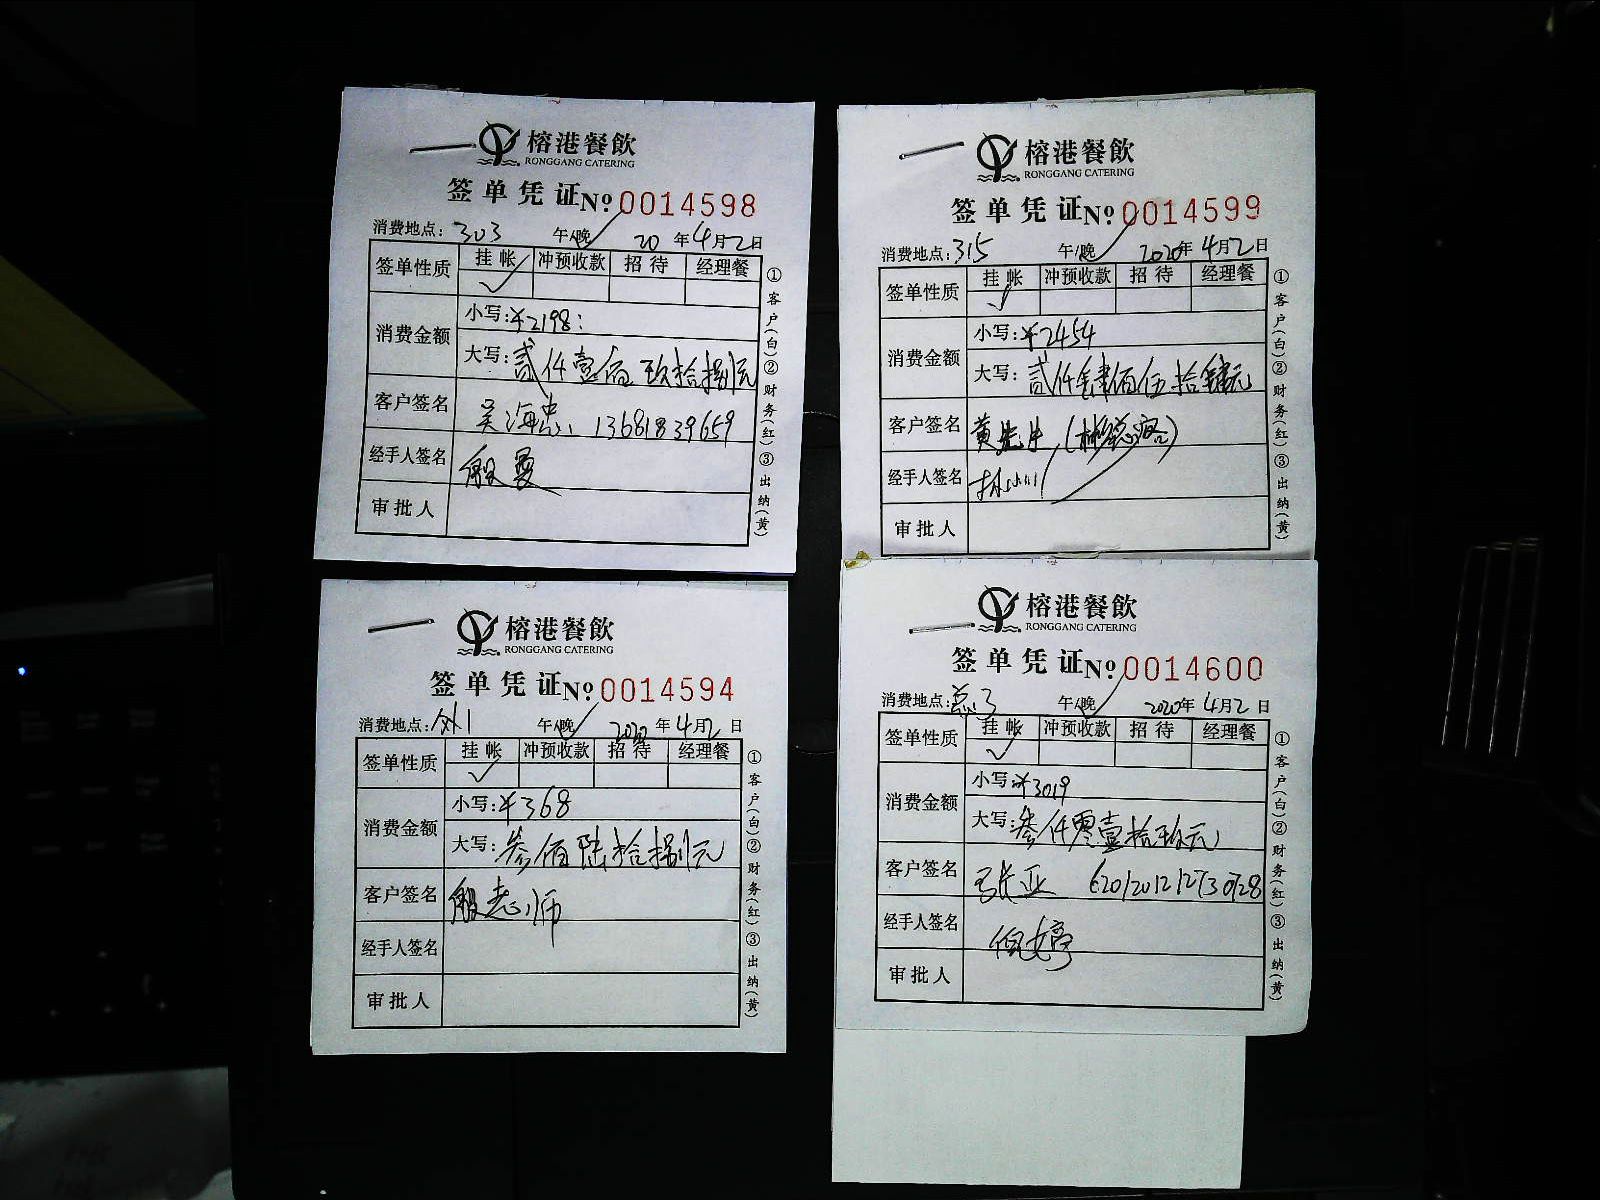 榕港餐飲
RONGGANG CATERING
签单凭证 №0014598
消费地点: 303 午/晚 20年4月2日
签单性质 挂帐 冲预收款 招待 经理餐
消费金额
小写: ¥2198:
大写: 贰仟壹佰玖拾捌元
客户签名 吴海忠 13681839659
经手人签名
审批人
①客户(白)②财务(红)③出纳(黄)
榕港餐飲
RONGGANG CATERING
签单凭证 №0014599
消费地点: 315 午/晚 2020年4月2日
签单性质 挂帐 冲预收款 招待 经理餐
消费金额
小写: ¥2454
大写: 贰仟肆佰伍拾肆元
客户签名 黄先生
经手人签名
审批人
①客户(白)②财务(红)③出纳(黄)
榕港餐飲
RONGGANG CATERING
签单凭证 №0014594
消费地点: 外1 午/晚 2020年4月2日
签单性质 挂帐 冲预收款 招待 经理餐
消费金额
小写: ¥368
大写: 叁佰陆拾捌元
客户签名
经手人签名
审批人
①客户(白)②财务(红)③出纳(黄)
榕港餐飲
RONGGANG CATERING
签单凭证 №0014600
消费地点: 总3 午/晚 2020年4月2日
签单性质 挂帐 冲预收款 招待 经理餐
消费金额
小写: ¥3019
大写: 叁仟零壹拾玖元
客户签名 张亚
经手人签名
审批人
①客户(白)②财务(红)③出纳(黄)